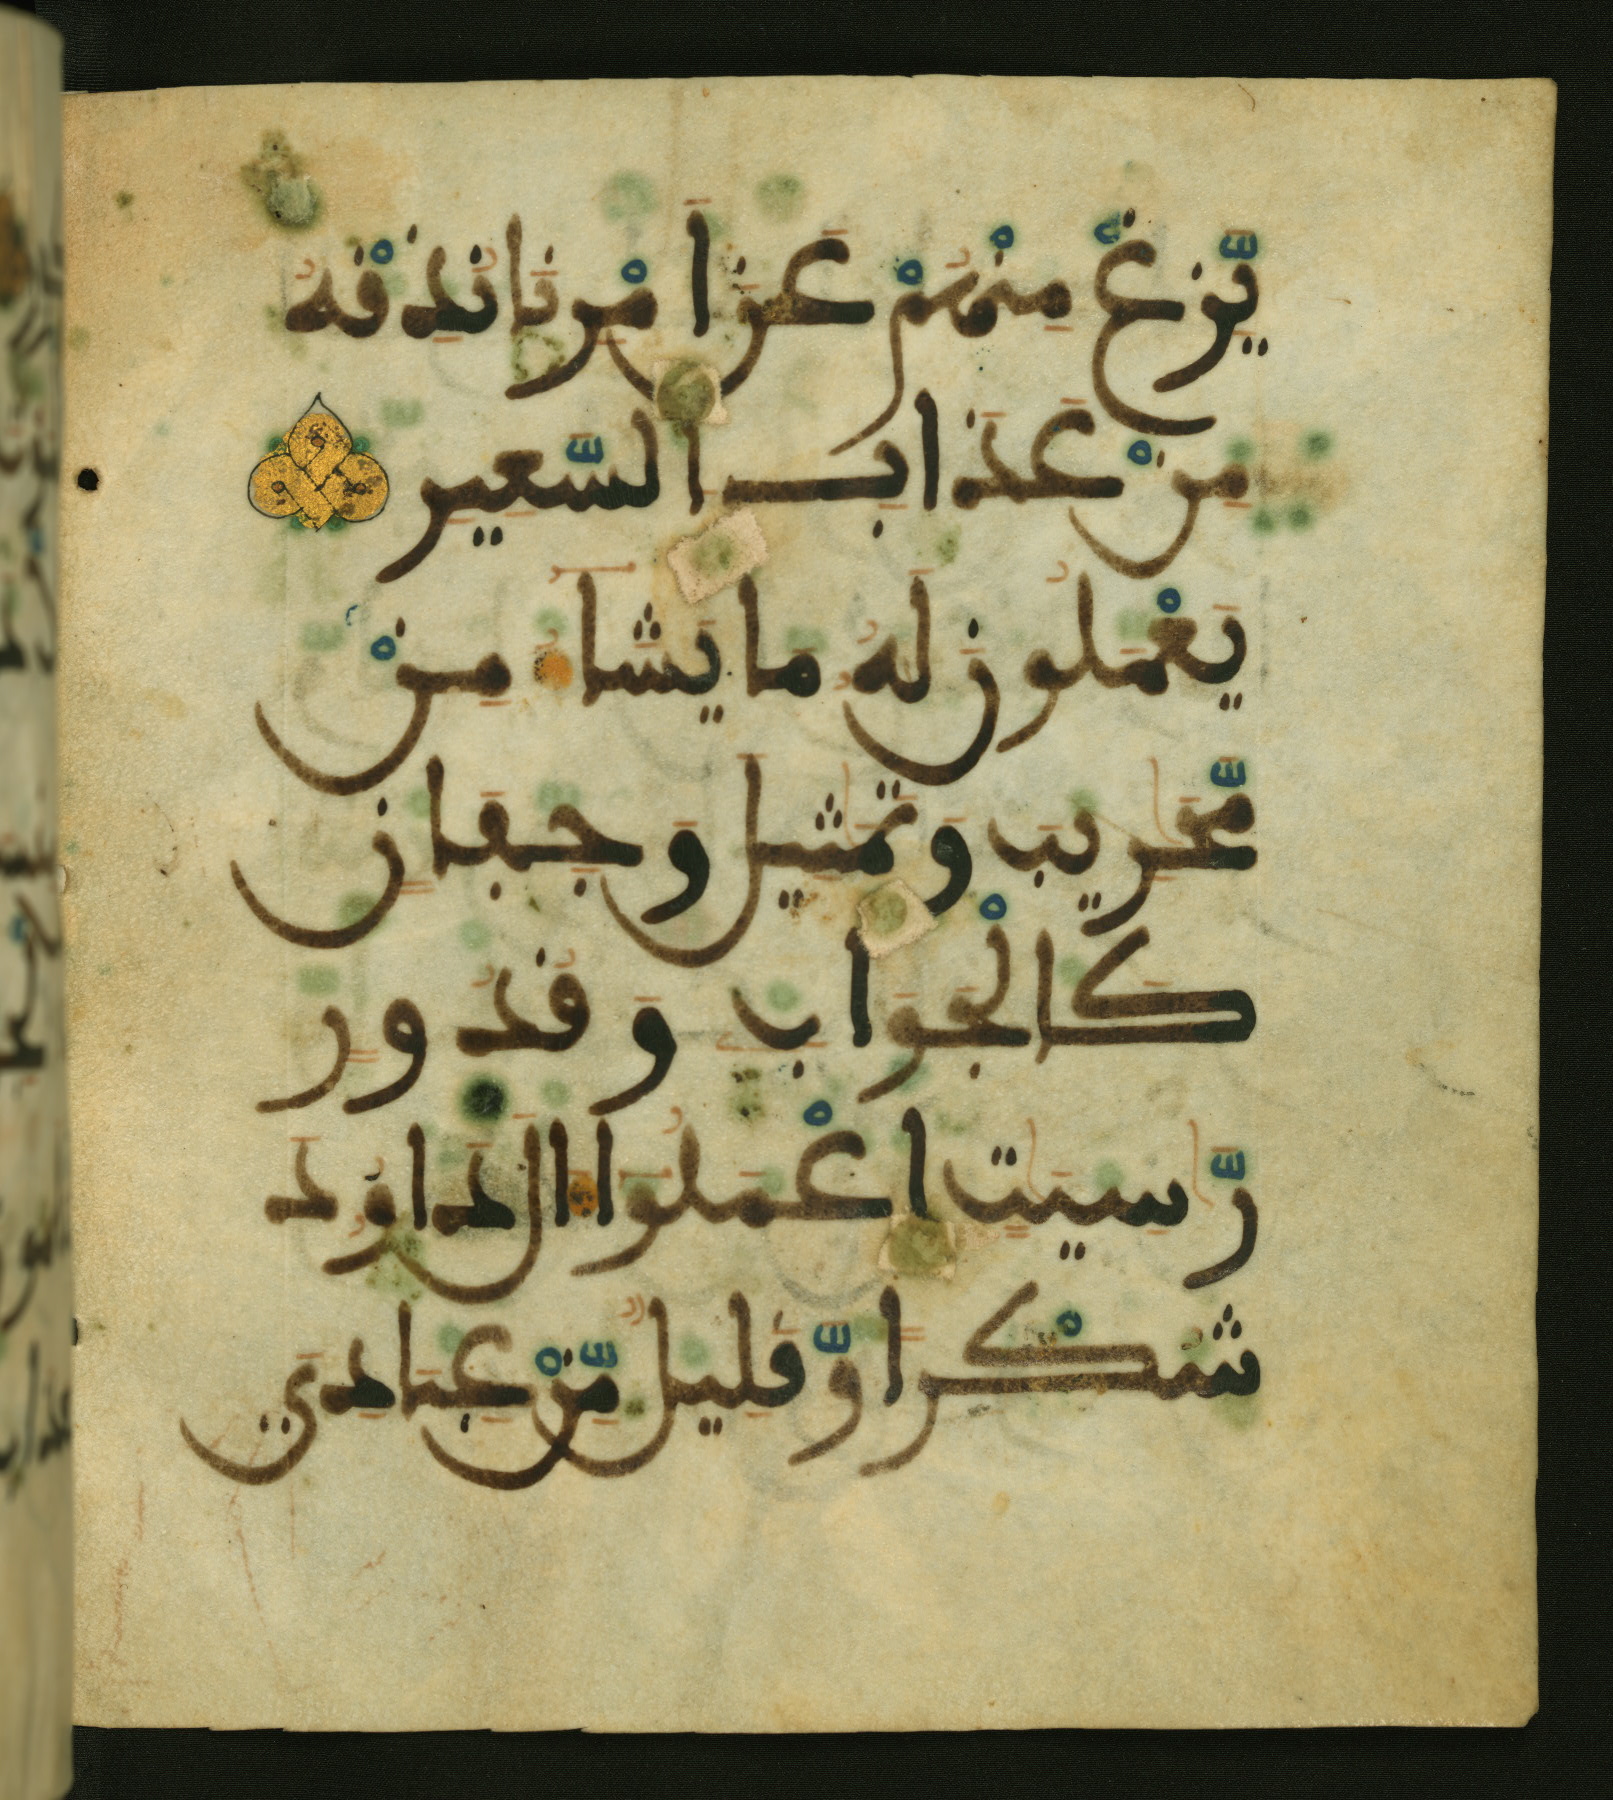 يَّزِغْ مِنْهُمْ عَنَ اَمْرِنَا نُذِقْهُ
مِنْ عَذَابِ السَّعِيرِ
يَعْمَلُونَ لَهُ مَا يَشَآءُ مِنْ
مَّحَٰرِيبَ وَتَمَٰثِيلَ وَجِفَانٍ
كَالْجَوَابِ وَقُدُورٍ
رَّاسِيَٰتٍ اِعْمَلُوٓا ءَالَ دَاوُدَ
شُكْرًا وَّقَلِيلٌ مِّنْ عِبَادِيَ